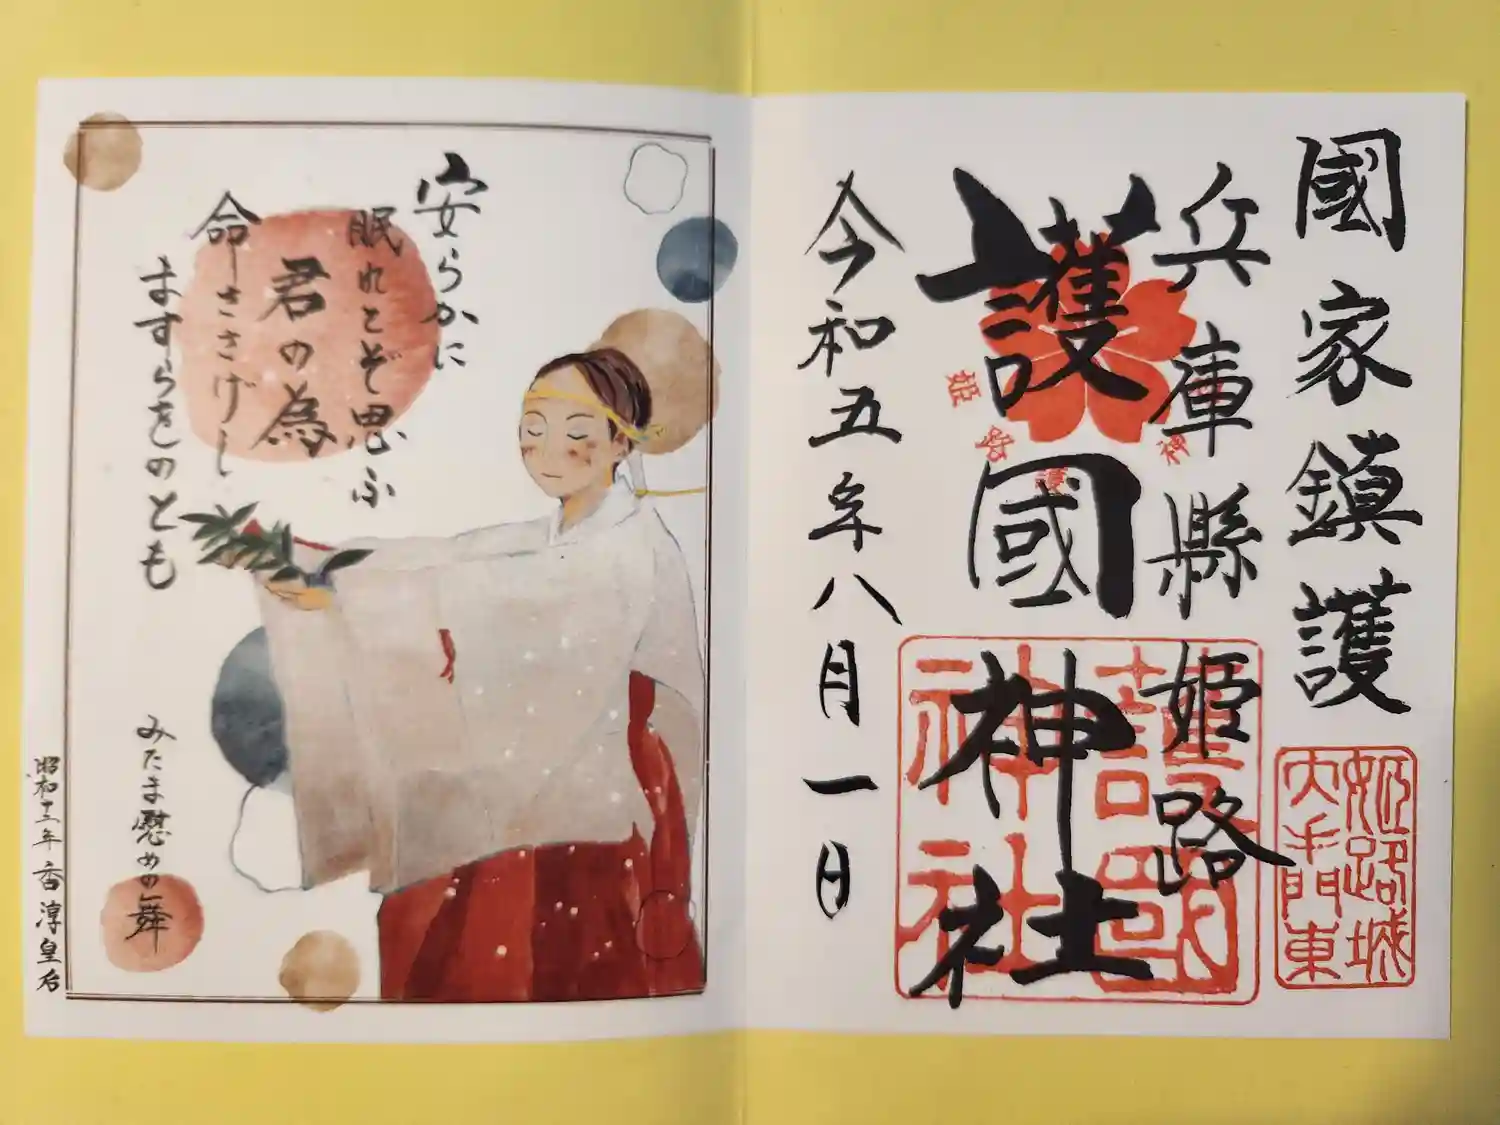 國家鎮護
兵庫縣姫路
護國神社
令和五年八月一日
姫路城
大手門東
護國
神社
姫
路
神
安らかに
眠れとぞ思ふ
君の為
命ささげし
ますらをのとも
みたま慰めの舞
昭和十三年 香淳皇后